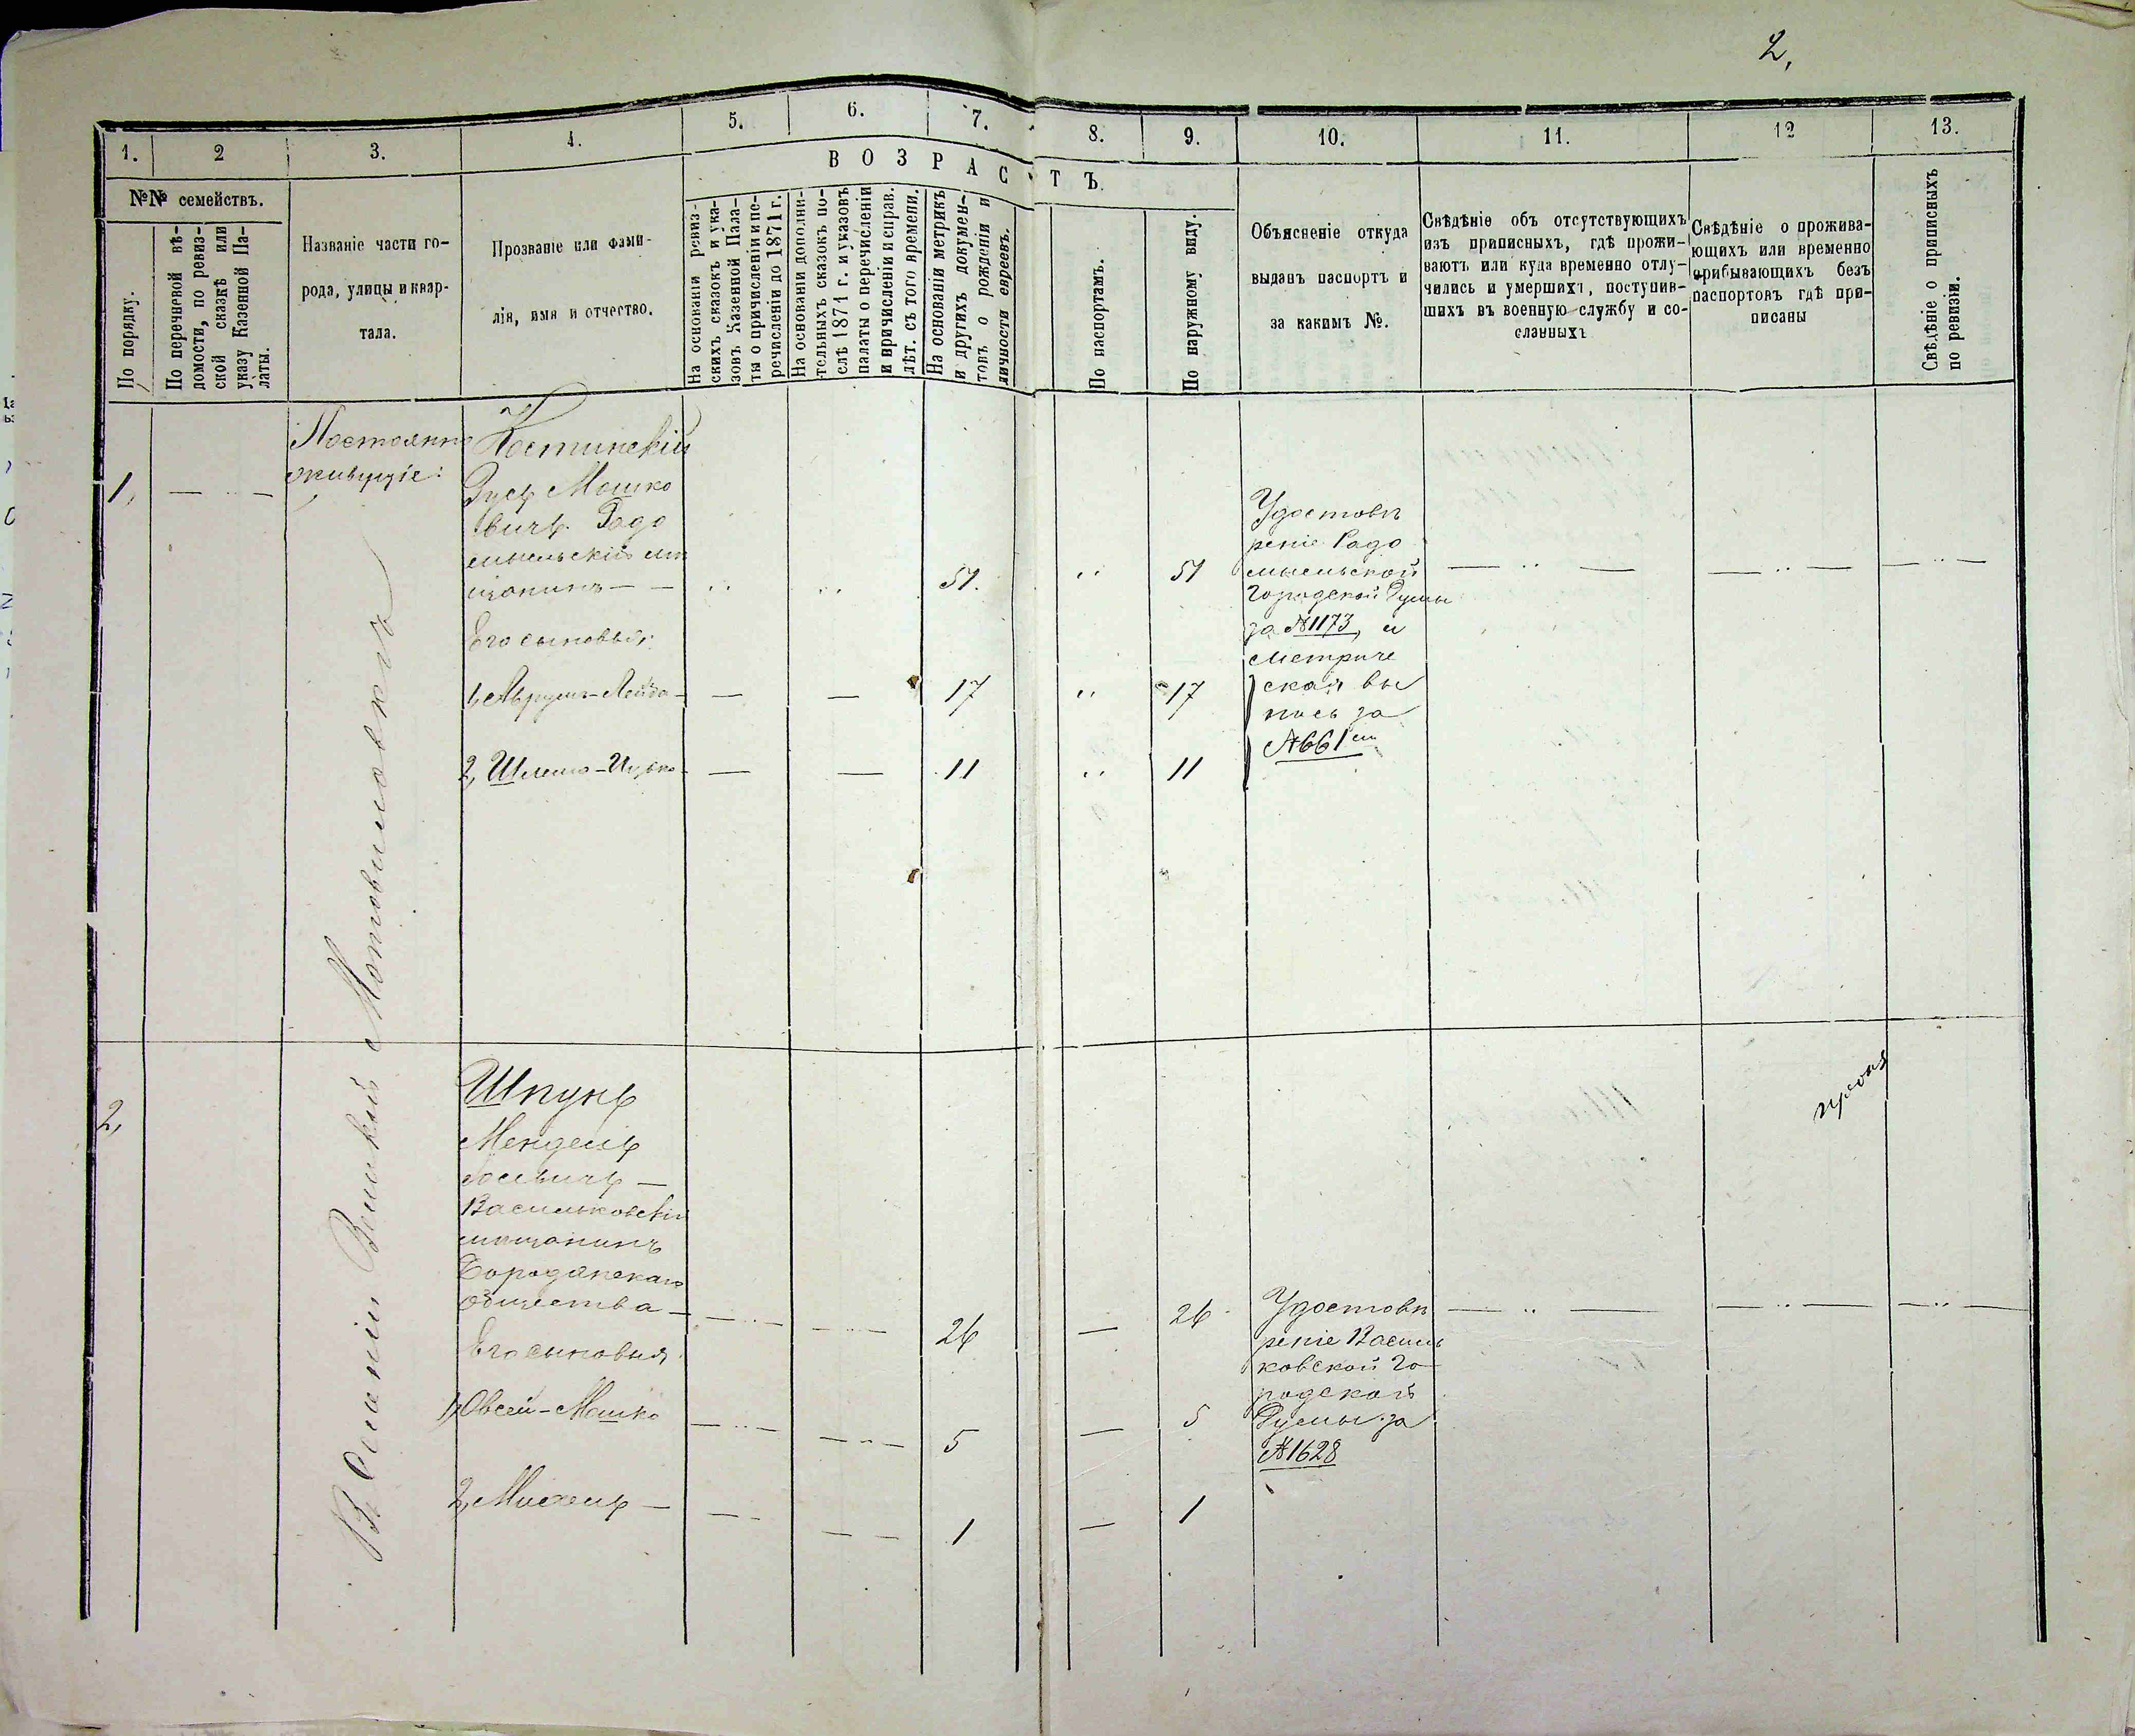 2,
1.
2
3.
4.
5.
6.
7.
8.
9.
10.
11.
12
13.
ВОЗРАСТЪ.
№№ семействъ.
По порядку.
По перечневой вѣ-
домости, по ревиз-
ской сказкѣ или
указу Казенной Па-
латы.
Названіе части го-
рода, улицы и квар-
тала.
Прозваніе или фами-
лія, имя и отчество.
На основаніи ревиз-
скихъ сказокъ и ука-
зовъ Казенной Пала-
ты о причисленіи и пе-
речисленіи до 1871 г.
На основаніи дополни-
тельныхъ сказокъ по-
слѣ 1871 г. и указовъ
палаты о перечисленіи
и причисленіи и справ.
лѣт. съ того времени.
На основаніи метрикъ
и другихъ докумен-
товъ о рожденіи и
личности евреевъ.
По паспортамъ.
По наружному виду.
Объясненіе откуда
выданъ паспортъ и
за какимъ №.
Свѣдѣніе объ отсутствующихъ
изъ приписныхъ, гдѣ прожи-
ваютъ или куда временно отлу-
чились и умершихъ, поступив-
шихъ въ военную службу и со-
сланныхъ
Свѣдѣніе о прожива-
ющихъ или временно
прибывающихъ безъ
паспортовъ гдѣ при-
писаны
Свѣдѣніе о приписныхъ
по ревизіи.
1,
Постоянно
живущіе:
Костинскій
Зусь Мошко
вичъ. Радо
мысльскій мѣ
щанинъ — —
51.
51
Его сыновья:
1, Аврумъ-Лейба —
17
17
2, Шлемо-Ицько —
11
11
Удостовѣ
реніе Радо
мысльской
Городской Думы
за №1173, и
Метриче
ская вы
пись за
№661
2,
Шпунъ
Мендель
Іосьвичъ —
Васильковскій
мѣщанинъ
Бородянскаго
общества —
26
26
Его сыновья
1, Овсей-Мошко
5
5
2, Михель —
1
1
Удостовѣ
реніе Василь
ковской Го
родской
Думы за
№1628